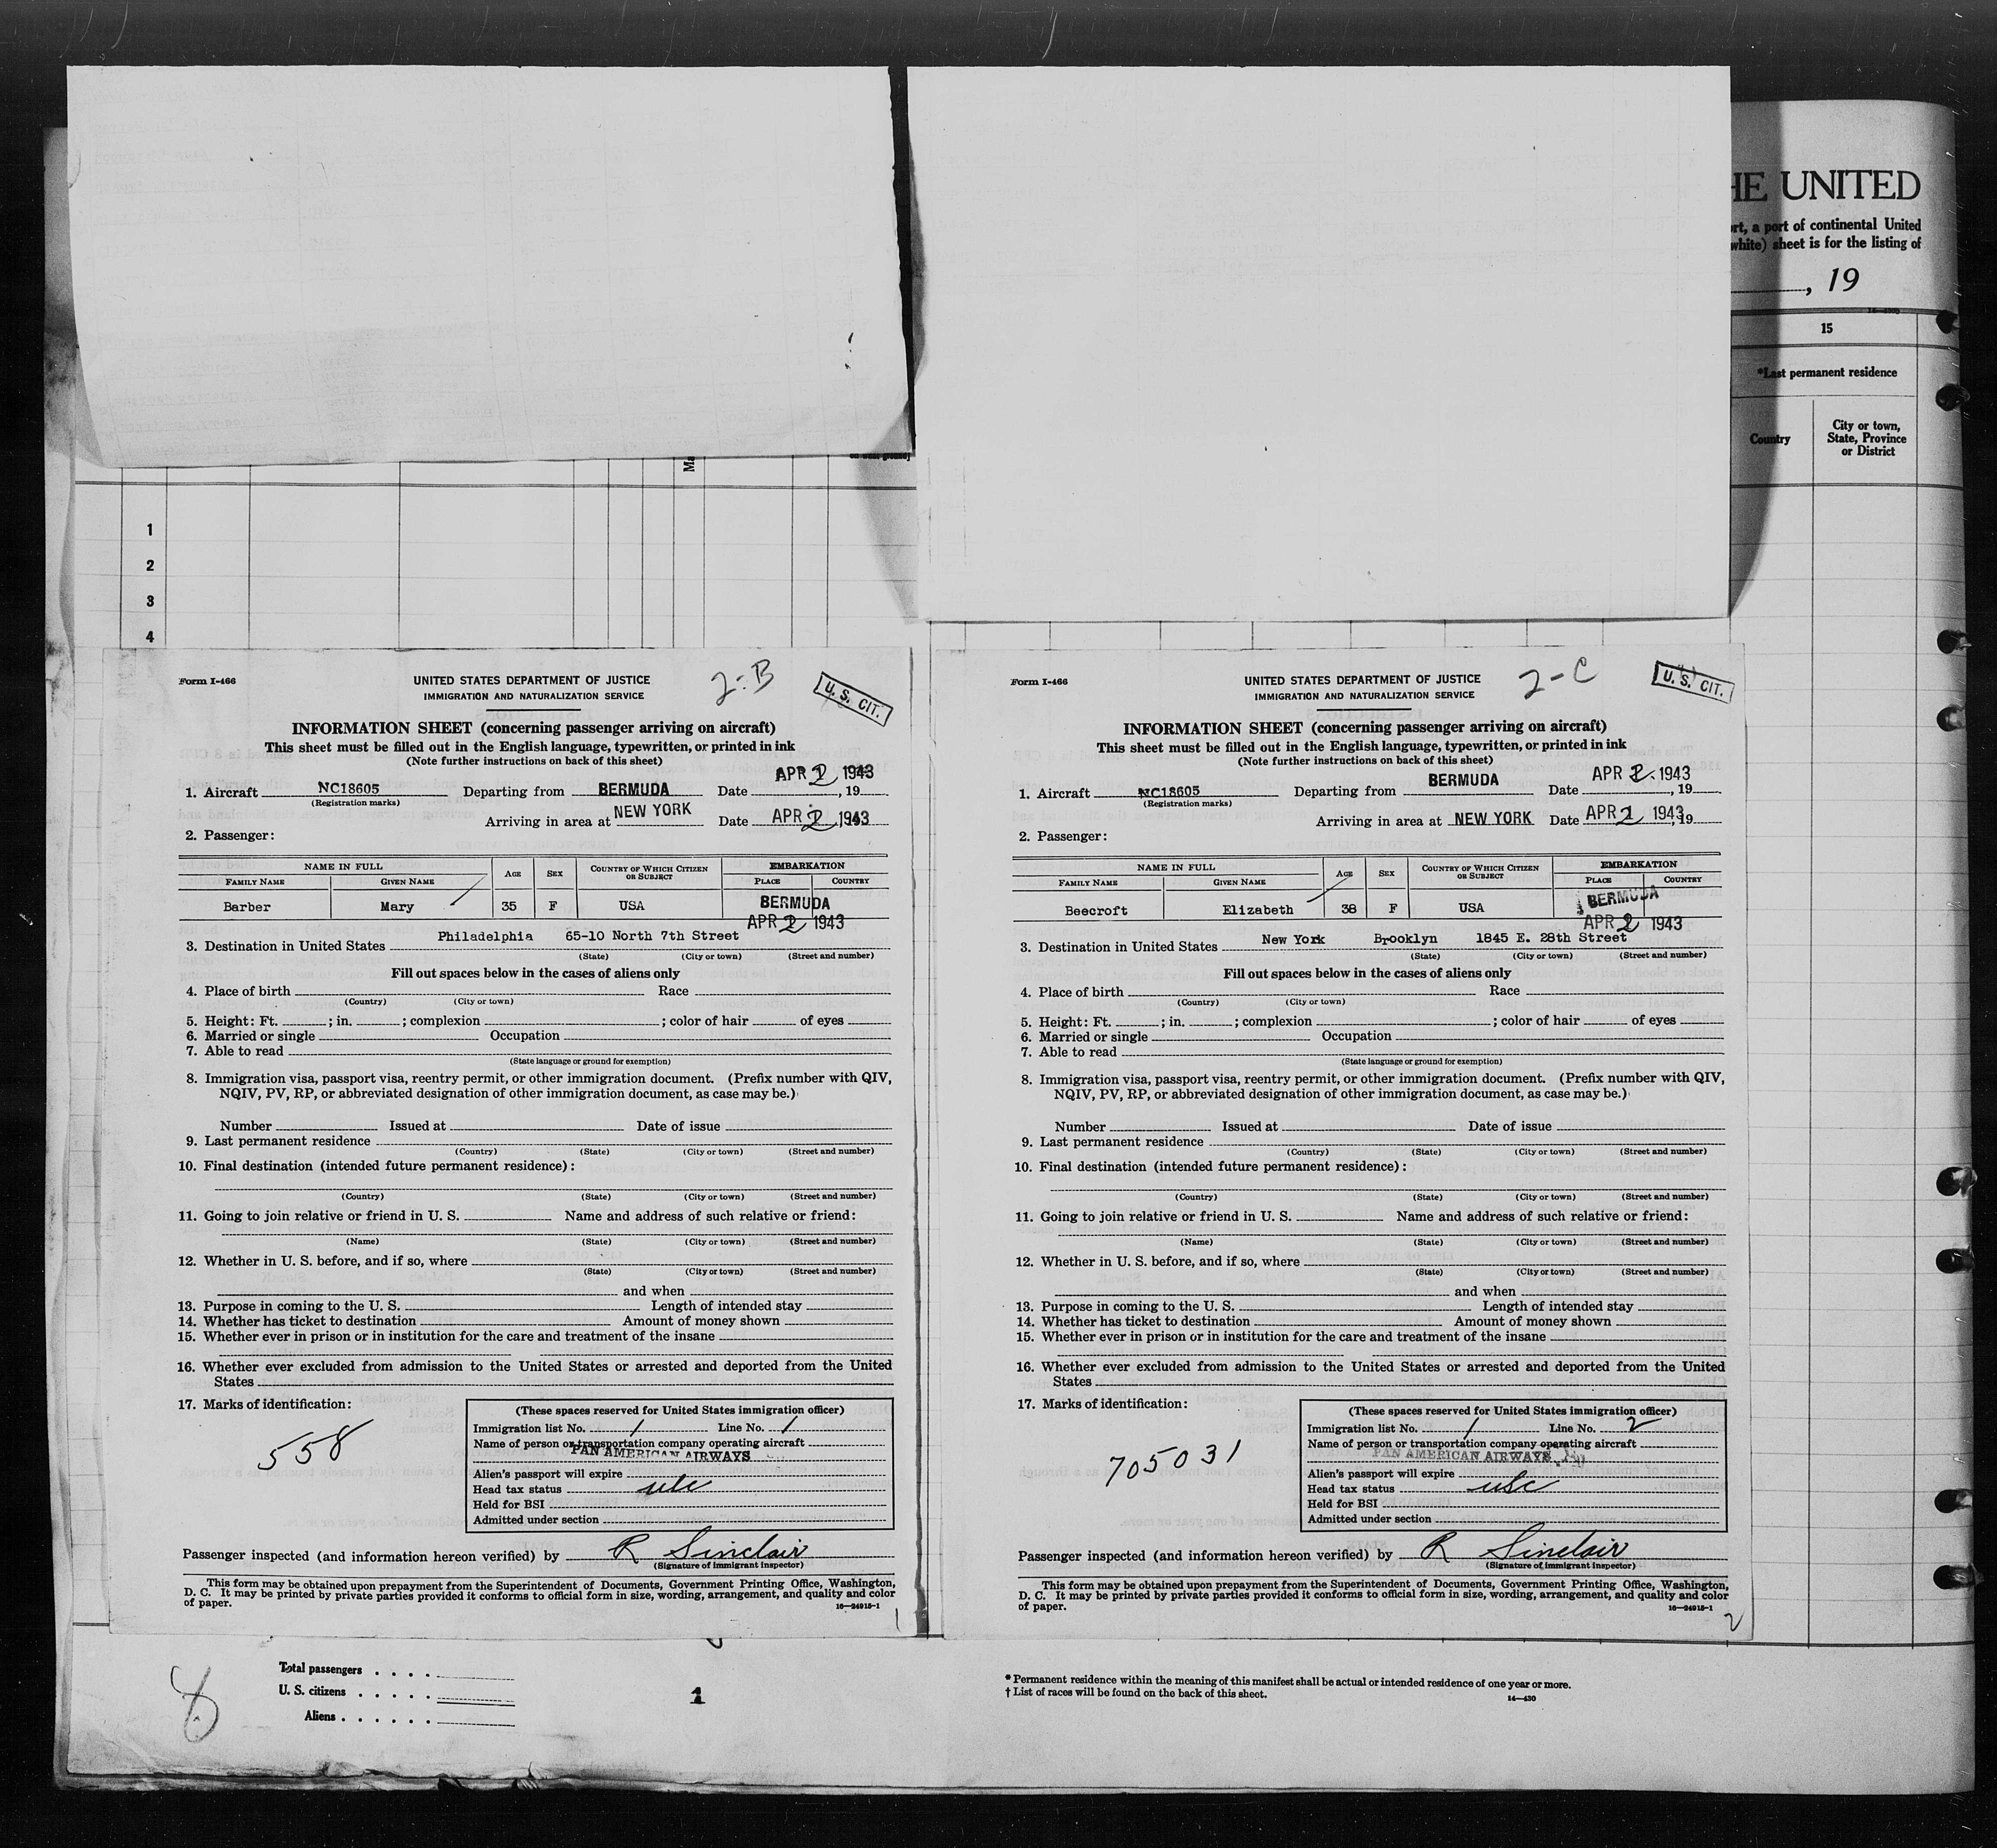 HE UNITED
rt, a port of continental United
white) sheet is for the listing of
, 19
15
*Last permanent residence
Country
City or town,
State, Province
or District
1
2
3
4
Form I-466
UNITED STATES DEPARTMENT OF JUSTICE
IMMIGRATION AND NATURALIZATION SERVICE
2-B
U. S. CIT.
INFORMATION SHEET (concerning passenger arriving on aircraft)
This sheet must be filled out in the English language, typewritten, or printed in ink
(Note further instructions on back of this sheet)
APR 2 1943
1. Aircraft NC18605 Departing from BERMUDA Date , 19
(Registration marks)
Arriving in area at NEW YORK Date APR 2 1943
2. Passenger:
NAME IN FULL AGE SEX COUNTRY OF WHICH CITIZEN OR SUBJECT EMBARKATION
FAMILY NAME GIVEN NAME PLACE COUNTRY
Barber Mary 35 F USA BERMUDA
APR 2 1943
3. Destination in United States Philadelphia 65-10 North 7th Street
(State) (City or town) (Street and number)
Fill out spaces below in the cases of aliens only
4. Place of birth Race
(Country) (City or town)
5. Height: Ft. ; in. ; complexion ; color of hair of eyes
6. Married or single Occupation
7. Able to read
(State language or ground for exemption)
8. Immigration visa, passport visa, reentry permit, or other immigration document. (Prefix number with QIV,
NQIV, PV, RP, or abbreviated designation of other immigration document, as case may be.)
Number Issued at Date of issue
9. Last permanent residence
(Country) (State) (City or town) (Street and number)
10. Final destination (intended future permanent residence):
(Country) (State) (City or town) (Street and number)
11. Going to join relative or friend in U. S. Name and address of such relative or friend:
(Name) (State) (City or town) (Street and number)
12. Whether in U. S. before, and if so, where
(State) (City or town) (Street and number)
and when
13. Purpose in coming to the U. S. Length of intended stay
14. Whether has ticket to destination Amount of money shown
15. Whether ever in prison or in institution for the care and treatment of the insane
16. Whether ever excluded from admission to the United States or arrested and deported from the United
States
17. Marks of identification:
558
(These spaces reserved for United States immigration officer)
Immigration list No. 1 Line No. 1
Name of person or transportation company operating aircraft
PAN AMERICAN AIRWAYS
Alien's passport will expire
Head tax status usc
Held for BSI
Admitted under section
Passenger inspected (and information hereon verified) by R Sinclair
(Signature of immigrant inspector)
This form may be obtained upon prepayment from the Superintendent of Documents, Government Printing Office, Washington,
D. C. It may be printed by private parties provided it conforms to official form in size, wording, arrangement, and quality and color
of paper.
16—24915-1
1
Form I-466
UNITED STATES DEPARTMENT OF JUSTICE
IMMIGRATION AND NATURALIZATION SERVICE
2-C
U. S. CIT.
INFORMATION SHEET (concerning passenger arriving on aircraft)
This sheet must be filled out in the English language, typewritten, or printed in ink
(Note further instructions on back of this sheet)
BERMUDA APR 2. 1943
1. Aircraft NC18605 Departing from Date , 19
(Registration marks)
Arriving in area at NEW YORK Date APR 2 1943, 19
2. Passenger:
NAME IN FULL AGE SEX COUNTRY OF WHICH CITIZEN OR SUBJECT EMBARKATION
FAMILY NAME GIVEN NAME PLACE COUNTRY
Beecroft Elizabeth 38 F USA BERMUDA
APR 2 1943
3. Destination in United States New York Brooklyn 1845 E. 28th Street
(State) (City or town) (Street and number)
Fill out spaces below in the cases of aliens only
4. Place of birth Race
(Country) (City or town)
5. Height: Ft. ; in. ; complexion ; color of hair of eyes
6. Married or single Occupation
7. Able to read
(State language or ground for exemption)
8. Immigration visa, passport visa, reentry permit, or other immigration document. (Prefix number with QIV,
NQIV, PV, RP, or abbreviated designation of other immigration document, as case may be.)
Number Issued at Date of issue
9. Last permanent residence
(Country) (State) (City or town) (Street and number)
10. Final destination (intended future permanent residence):
(Country) (State) (City or town) (Street and number)
11. Going to join relative or friend in U. S. Name and address of such relative or friend:
(Name) (State) (City or town) (Street and number)
12. Whether in U. S. before, and if so, where
(State) (City or town) (Street and number)
and when
13. Purpose in coming to the U. S. Length of intended stay
14. Whether has ticket to destination Amount of money shown
15. Whether ever in prison or in institution for the care and treatment of the insane
16. Whether ever excluded from admission to the United States or arrested and deported from the United
States
17. Marks of identification:
705031
(These spaces reserved for United States immigration officer)
Immigration list No. 1 Line No. 2
Name of person or transportation company operating aircraft
PAN AMERICAN AIRWAYS
Alien's passport will expire
Head tax status usc
Held for BSI
Admitted under section
Passenger inspected (and information hereon verified) by R Sinclair
(Signature of immigrant inspector)
This form may be obtained upon prepayment from the Superintendent of Documents, Government Printing Office, Washington,
D. C. It may be printed by private parties provided it conforms to official form in size, wording, arrangement, and quality and color
of paper.
16—24915-1
2
8
Total passengers . . . .
U. S. citizens . . . . .
Aliens . . . . . .
1
* Permanent residence within the meaning of this manifest shall be actual or intended residence of one year or more.
† List of races will be found on the back of this sheet.
14—430